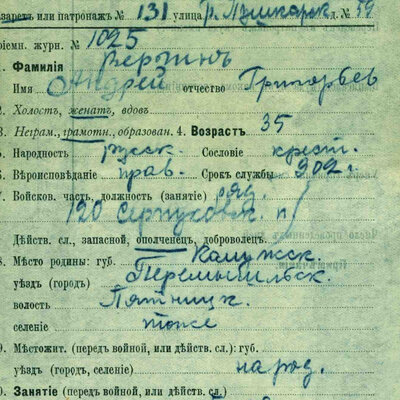 азаретъ или патронажъ № 131 улица Б. Пушкарск. д. № 59
ріемн. журн. № 1025
1. Фамилія Вершинъ
Имя Андрей отчество Григорьев
2. Холостъ, женатъ, вдовъ
3. Неграм., грамотн., образован. 4. Возрастъ 35
5. Народность русск Сословіе крест.
6. Вѣроисповѣданіе прав. Срокъ службы 902 г.
7. Войсков. часть, должность (занятіе) ряд.
120 Серпуховск. п.
Дѣйств. сл., запасной, ополченецъ, доброволецъ.
8. Мѣсто родины: губ. Калужск.
уѣздъ (городъ) Перемышльск.
волость Пятницк.
селеніе тоже
9. Мѣстожит. (передъ войной, или дѣйств. сл.): губ.
уѣздъ (городъ, селеніе) на род.
0. Занятіе (передъ войной, или дѣйств. сл.)